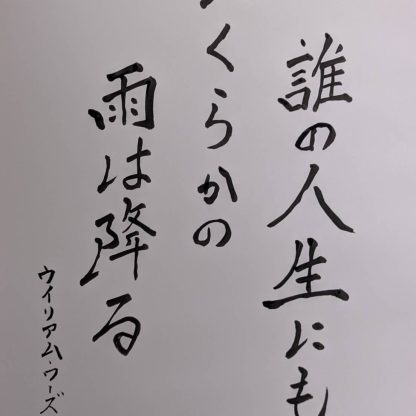 誰の人生にも
くらかの
雨は降る
ウイリアム・ワーズ